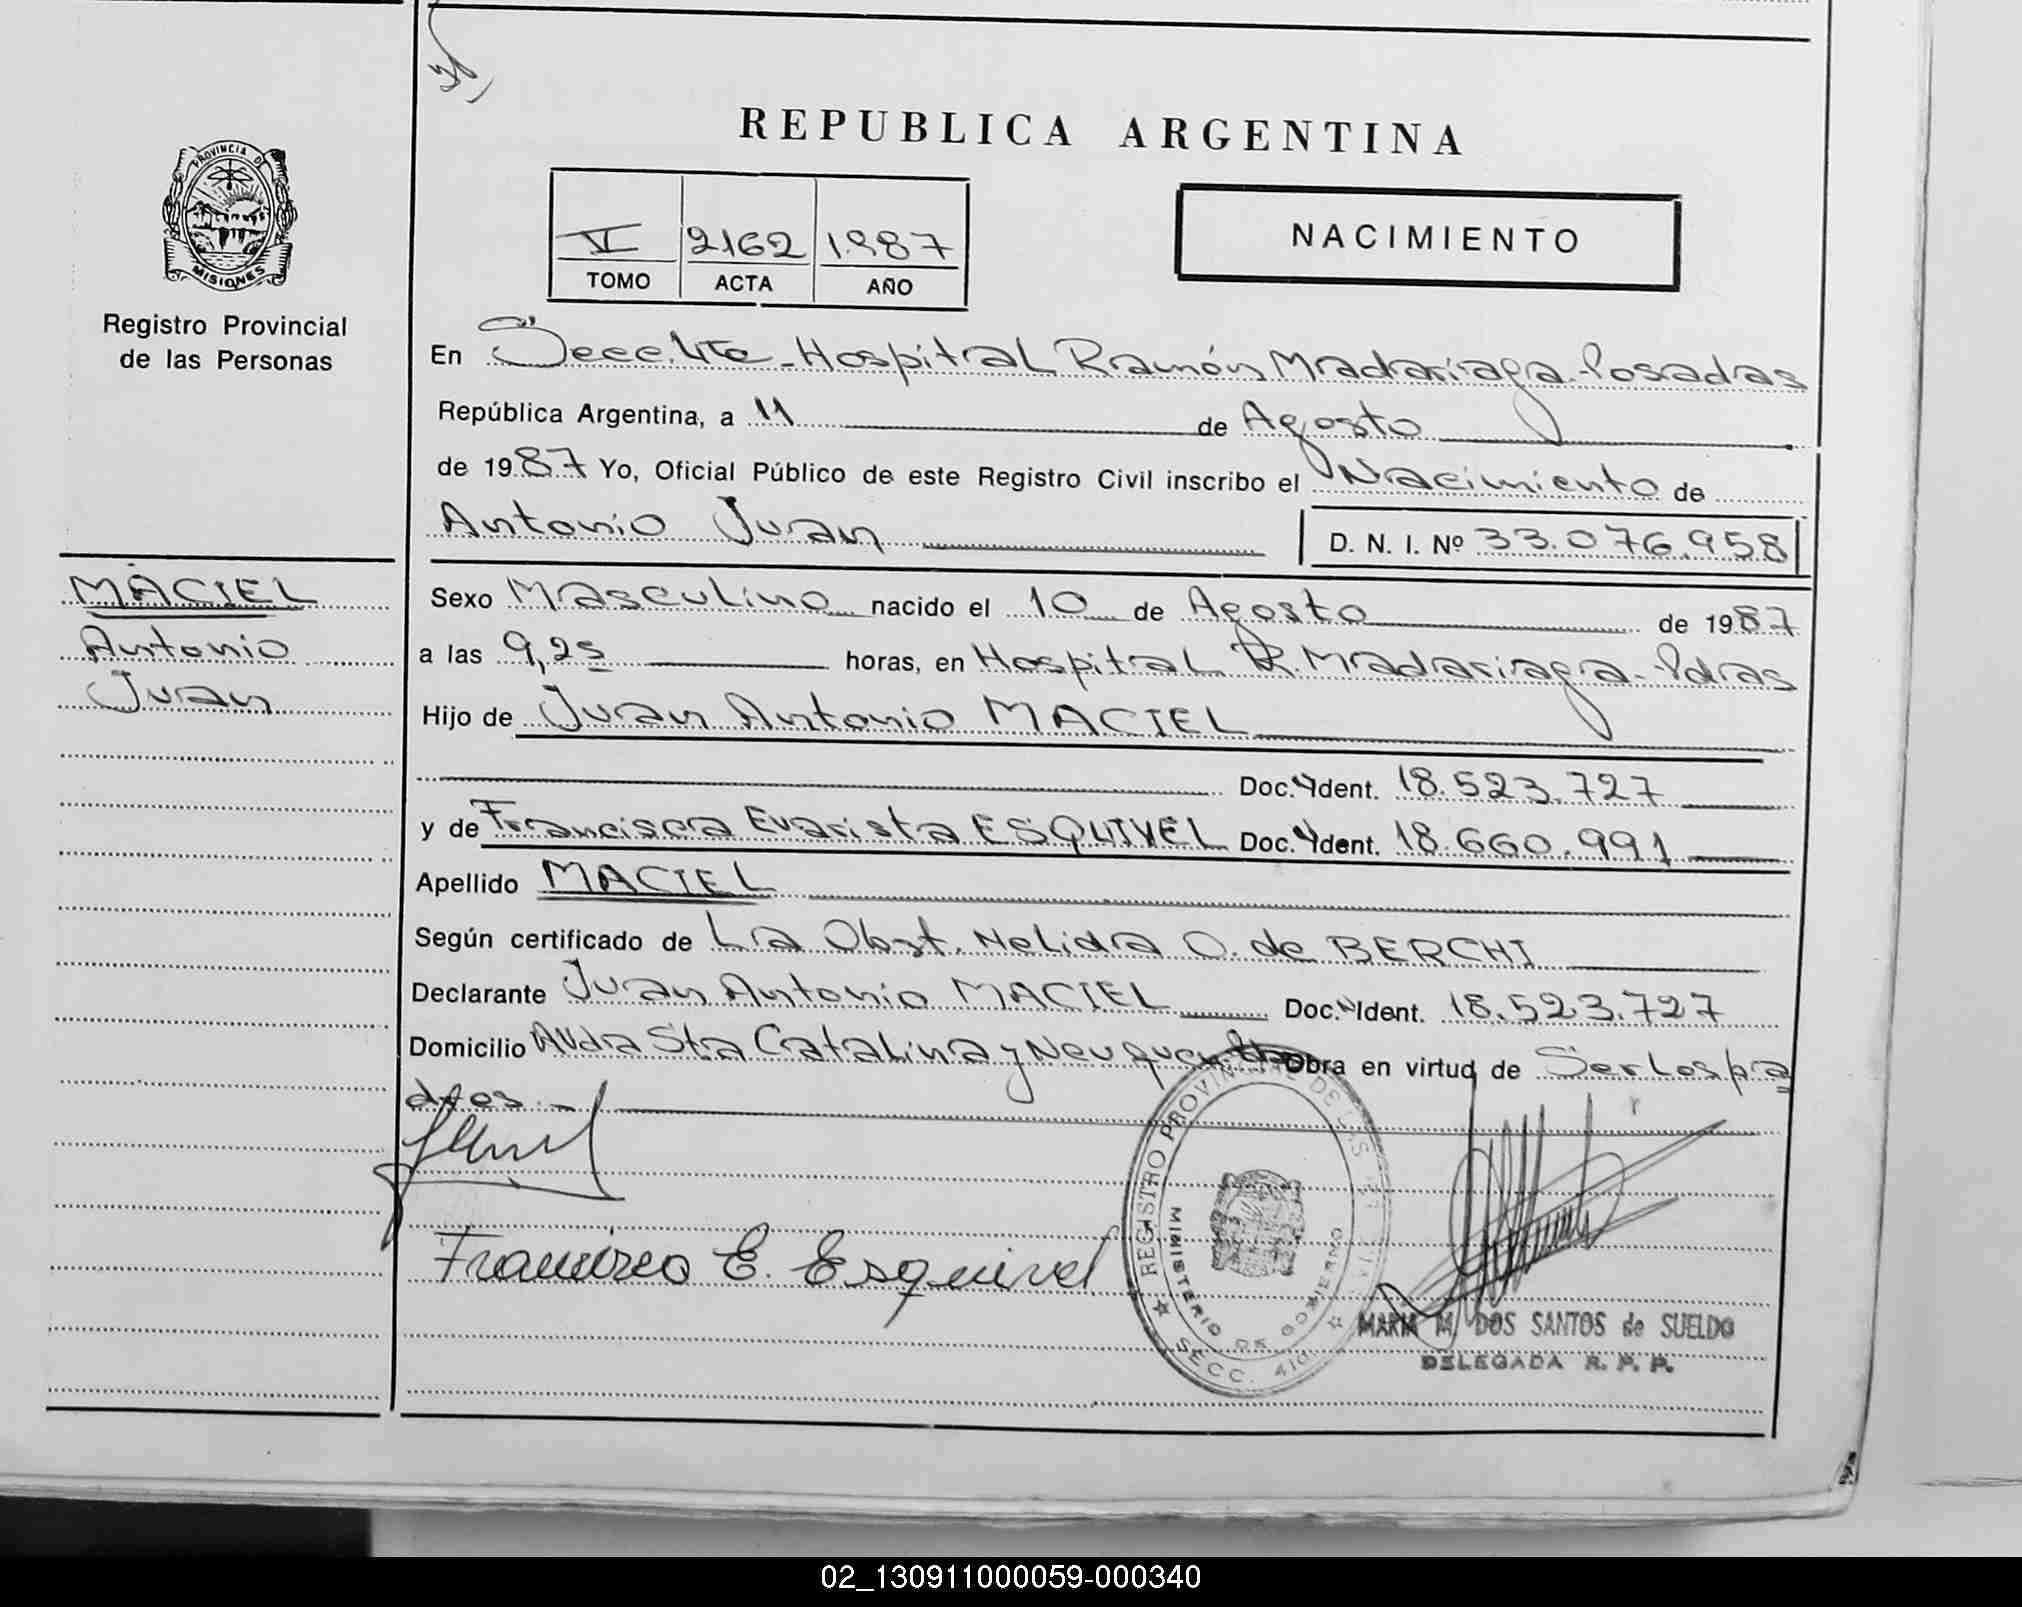 REPUBLICA ARGENTINA
PROVINCIA D
MISIONES
Registro Provincial
de las Personas
V 2162 1987
TOMO ACTA AÑO
NACIMIENTO
En Secc. 4ta - Hospital Ramón Madariaga - Posadas
República Argentina, a 11 de Agosto
de 1987 Yo, Oficial Público de este Registro Civil inscribo el Nacimiento de
Antonio Juan D. N. I. Nº 33.076.958
MACIEL
Antonio
Juan
Sexo Masculino nacido el 10 de Agosto de 1987
a las 9,25 horas, en Hospital R. Madariaga - Pdas
Hijo de Juan Antonio MACIEL
Doc. Ident. 18.523.727
y de Francisca Evarista ESQUIVEL Doc. Ident. 18.660.991
Apellido MACIEL
Según certificado de La Obst. Nelida O. de BERCHI
Declarante Juan Antonio MACIEL Doc. Ident. 18.523.727
Domicilio Avda Sta Catalina y Neuquen Obra en virtud de Ser los pa
dres.-
Francisca E. Esquivel
REGISTRO PROVINCIAL DE LAS
MINISTERIO DE GOBIERNO
SECC. 4ta
MARIA M. DOS SANTOS de SUELDO
DELEGADA R. P. P.
02_130911000059-000340